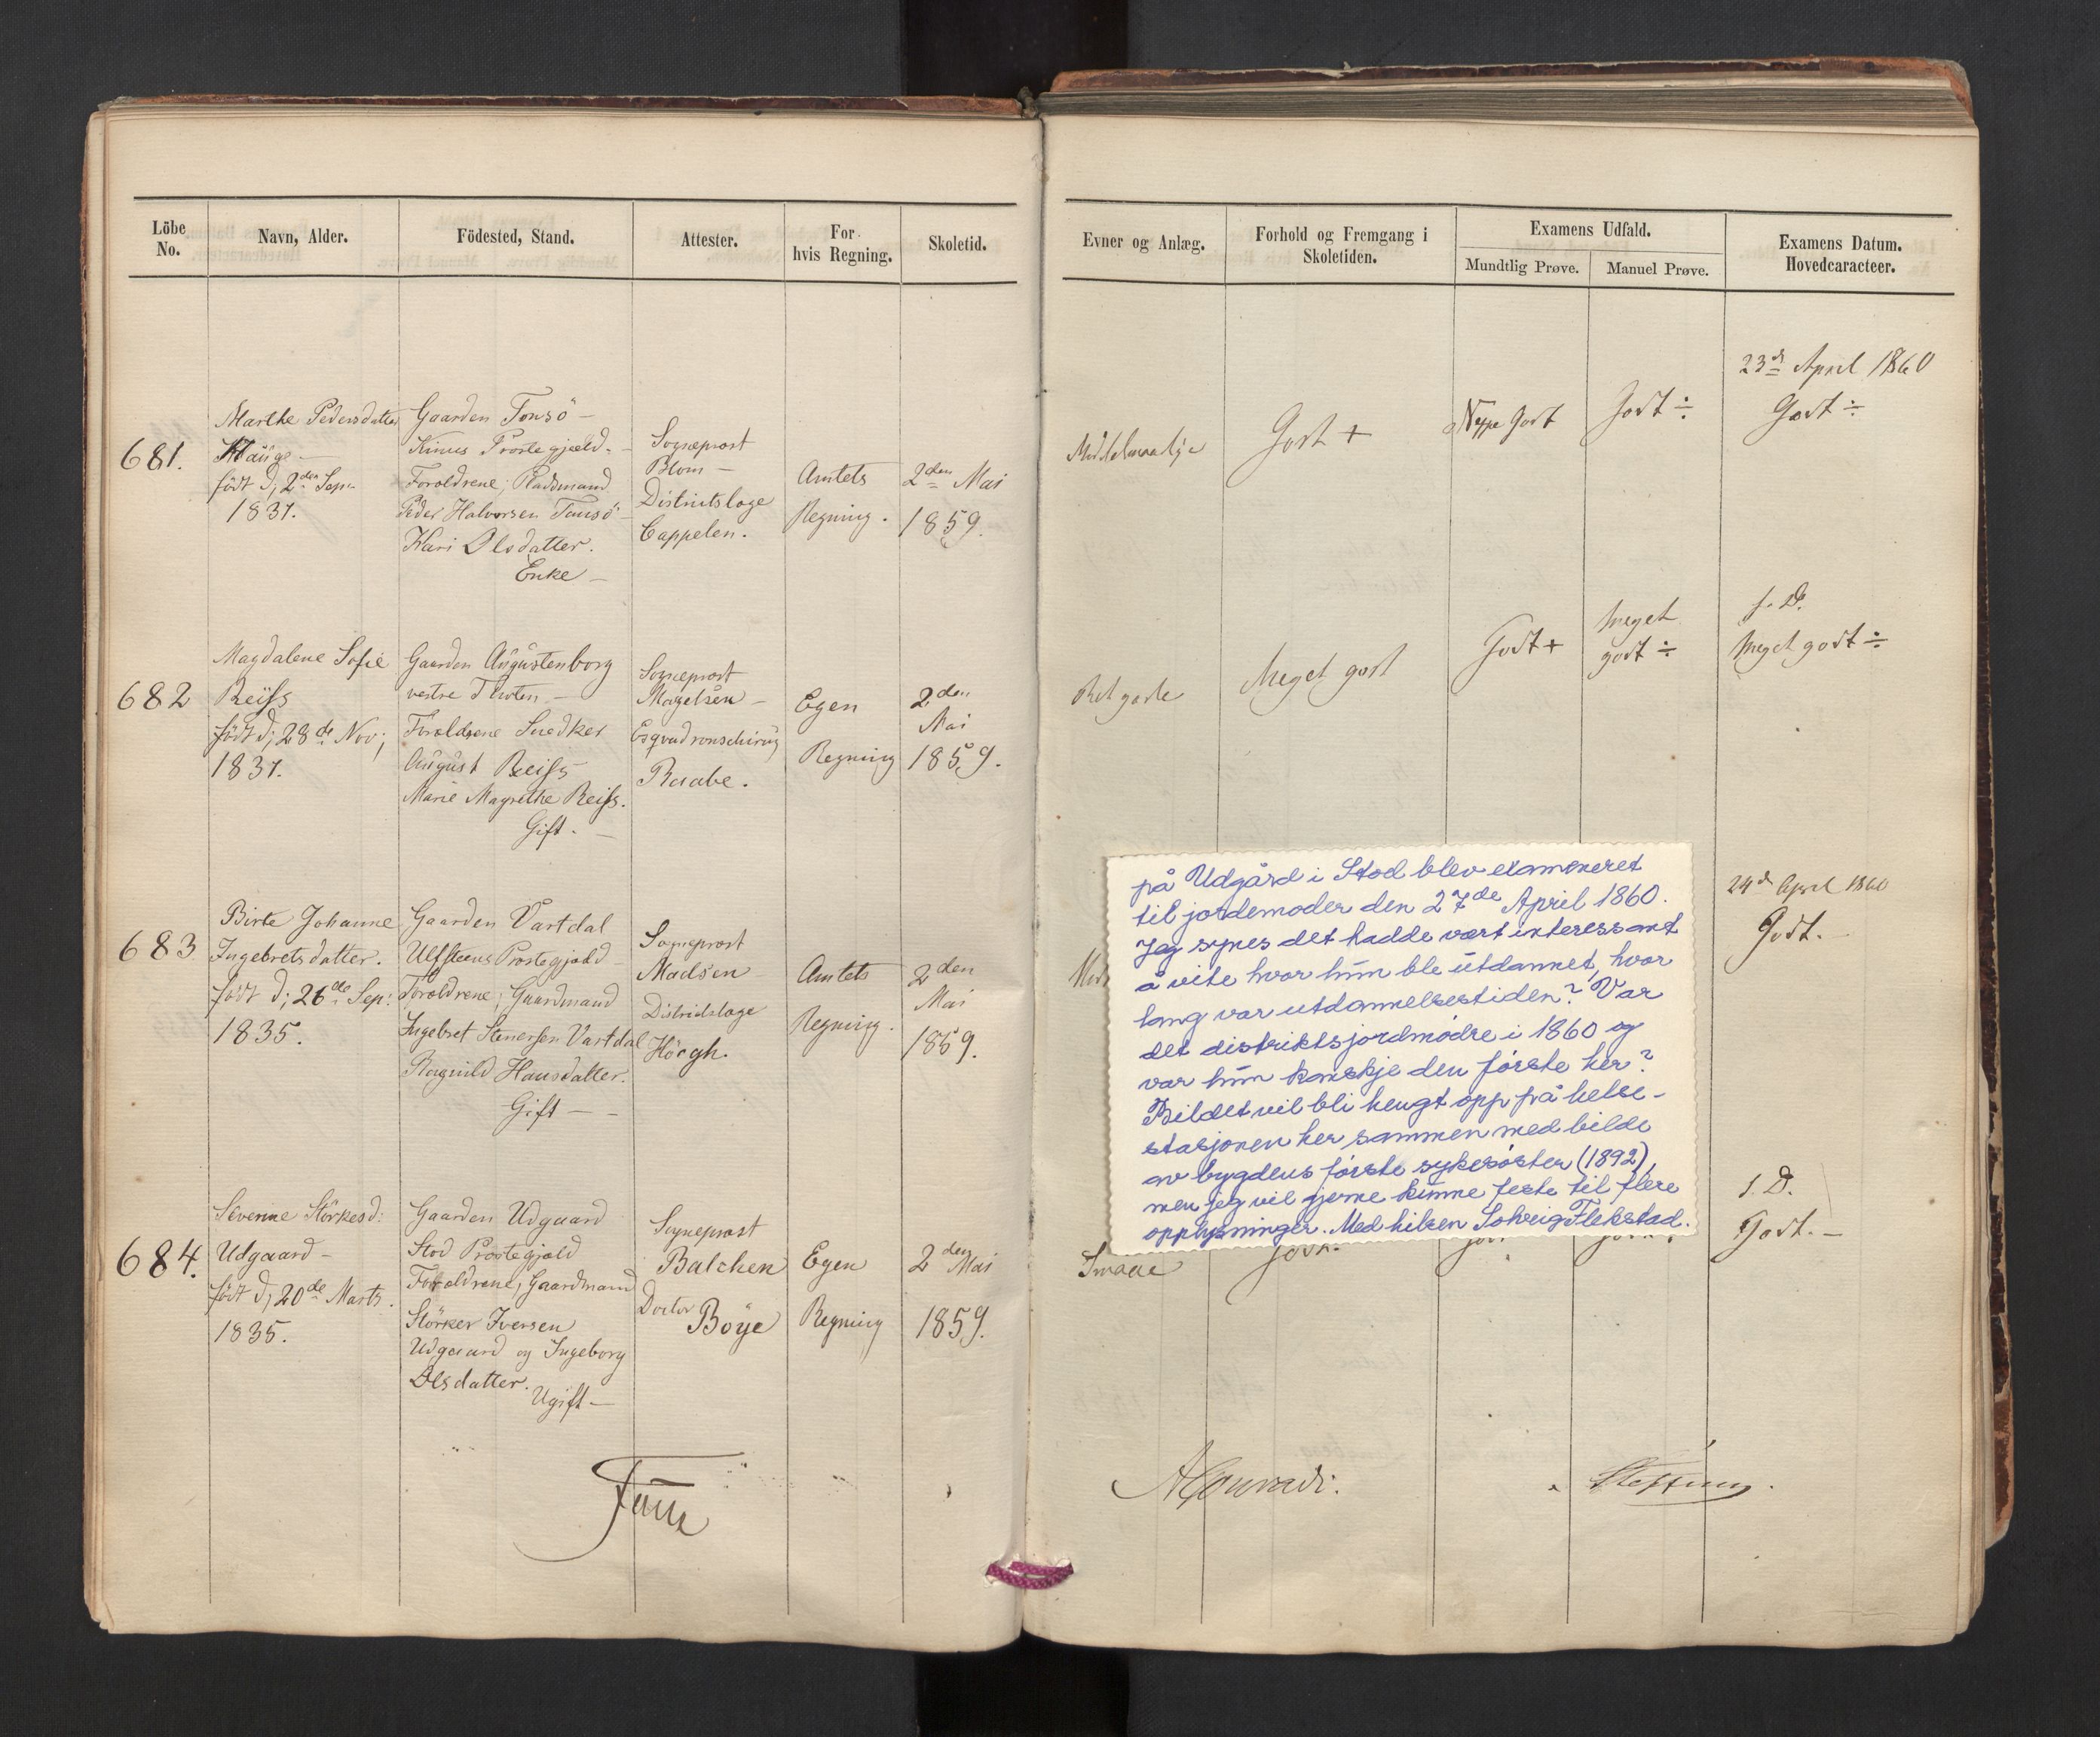 Löbe No.
Navn, Alder.
Födested, Stand.
Attester.
For hvis Regning.
Skoletid.
681.
Marthe Pedersdatter
Hauge —
födt d; 2den Sep.
1831.
Gaarden Tonsö —
Kinns Præstegjæld. —
Foræledrene; Pladsmand
Peder Halvorsen Tonsö —
Kari Olsdatter.
Enke —
Sogneprest
Blom —
Distriktslæge
Cappelen.
Amtets
Regning.
2den Mai
1859.
682
Magdalene Sofie
Reiss
födt d; 28de Nov;
1831.
Gaarden Augustenborg
vestre Thoten —
Foræledrene Snedker
August Reiss
Marie Magrethe Reiss.
Gift. —
Sogneprest
Magelsen —
Esqvadronschirurg
Raabe.
Egen
Regning
2den
Mai
1859.
683
Birte Johanne
Ingebretsdatter.
födt d; 26de Sep:
1835.
Gaarden Vartdal
Ulfsteens Prestegjæld
Forældrene; Gaardmand
Ingebret Stenersen Vartdal
Ragnild Hansdatter.
Gift — —
Sogneprest
Madsen
Distriktslæge
Höegh.
Amtets
Regning.
2den
Mai
1859.
684.
Severine Störkesd:
Udgaard —
født d; 20de Marts.
1835.
Gaarden Udgaard
Stod Prestegjæld
Forældrene; Gaardmand
Störker Iversen
Udgaard og Ingeborg
Olsdatter.
Ugift —
Sogneprest
Balchen
Doctor
Böye
Egen
Regning
2den Mai
1859.
Faye
Evner og Anlæg.
Forhold og Fremgang i Skoletiden.
Examens Udfald.
Mundtlig Prøve.
Manuel Prøve.
Examens Datum.
Hovedcaracteer.
Middelmaadige
Godt +
Neppe Godt
Godt ÷
23de April 1860
Godt ÷
Ret gode
Meget godt
Godt +
Meget
godt ÷
s. D.
Meget godt ÷
24de April 1860
Godt.
på Udgård i Stod blev examineret
til jordemoder den 27de April 1860.
Jeg synes det hadde vært interessant
å vite hvor hun ble utdannet, hvor
lang var utdannelsestiden? Var
det distriktsjordmødre i 1860 og
var hun kanskje den første her?
Bildet vil bli hengt opp på helse-
stasjonen her sammen med bilde
av bygdens første sykesøster (1892),
men jeg vil gjerne kunne feste til flere
opplysninger. Med hilsen Solveig Flekstad.
Smaae
s. D.
Godt. —
AConradi.
Steffens.